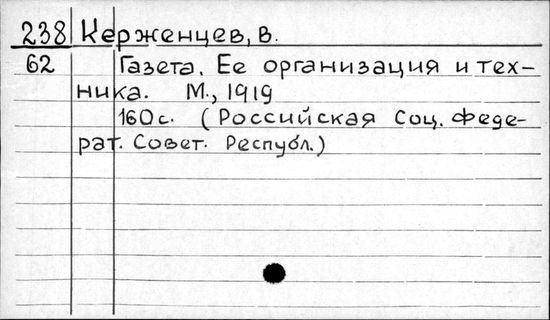 238 Керженцев, В.
62 Газета. Ее организация и тех-
ника. М., 1919
160с. (Российская Соц. Феде-
рат. Совет. Республ.)